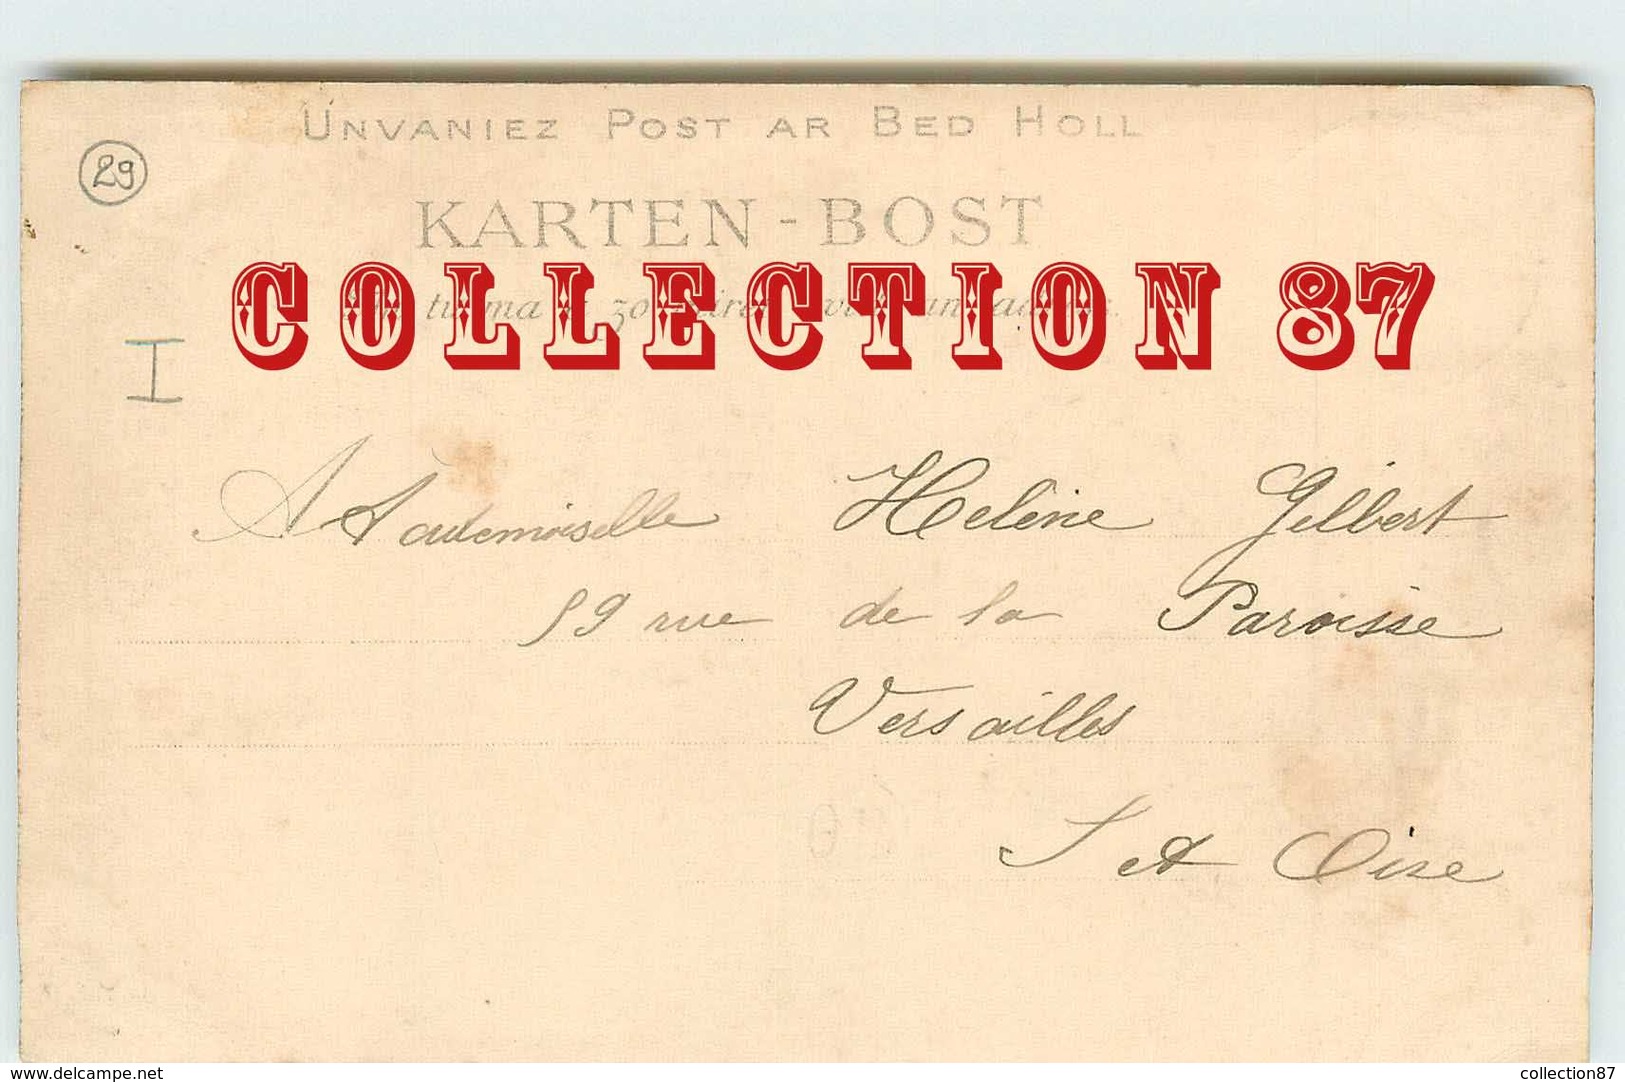 UNVANIEZ POST AR BED HOLL
29
KARTEN-BOST
COLLECTION 87
I
A Mademoiselle Helène Gilbert
59 rue de la Paroisse
Versailles
S et Oise
delcampe.net
collection87